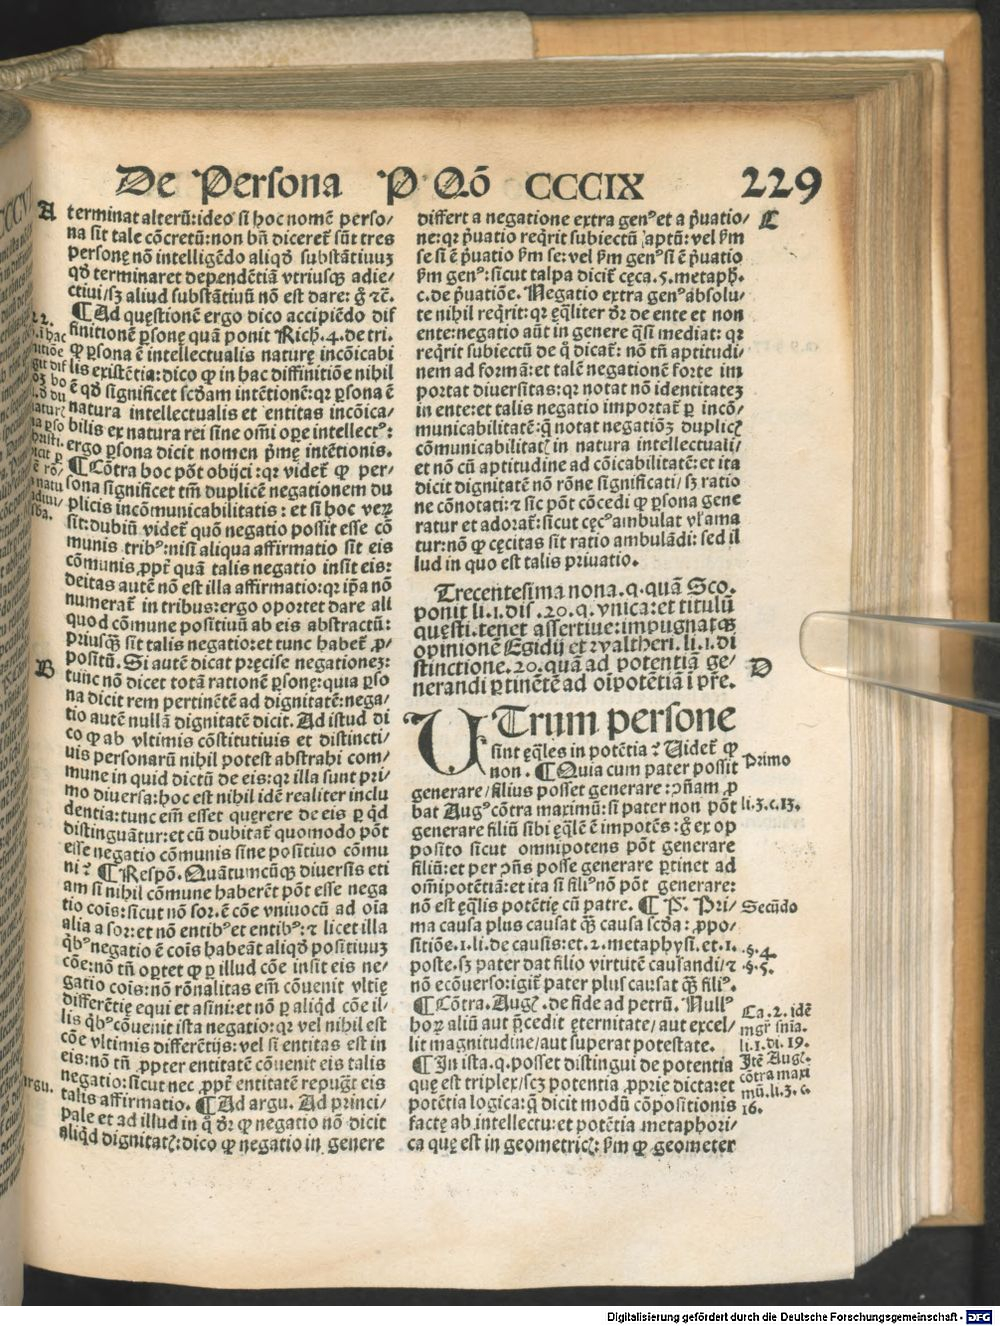 De Persona P Qō CCCIX 229
A terminat alterū:ideo si hoc nomē perso/
na sit tale cōcretū:non bñ diceret̄ sūt tres
personę nō intelligēdo aliqđ substātiuuꝫ
qđ terminaret dependētiā vtriusqꝫ adie/
ctiui/sꝫ aliud substātiuū nō est dare: ḡ ⁊c̄.
¶Ad quęstionē ergo dico accipiēdo dif
finitionē ꝑsonę quā ponit Rich.4.de tri.
ꝙ ꝑsona ē intellectualis naturę incōicabi
lis existētia:dico ꝙ in hac diffinitiōe nihil
ē qđ significet scđam intētionē:qꝛ ꝑsona ē
natura intellectualis et entitas incōica/
bilis ex natura rei sine om̄i oꝑe intellectꝰ:
ergo ꝑsona dicit nomen p̄mę intētionis.
¶Cōtra hoc pōt obijci:qꝛ videt̄ ꝙ per/
sona significet tm̄ duplicē negationem du
plicis incōmunicabilitatis: et si hoc veꝝ
sit:dubiū videt̄ quō negatio possit esse cō
munis tribꝰ:nisi aliqua affirmatio sit eis
cōmunis ꝓpt̄ quā talis negatio insit eis:
deitas autē nō est illa affirmatio:qꝛ ip̄a nō
numerat̄ in tribus:ergo oportet dare ali
quod cōmune positiuū ab eis abstractū:
priusqꝫ sit talis negatio:et tunc habet̄ ꝓ/
positū. Si autē dicat pręcise negationeꝫ:
B tunc nō dicet totā rationē ꝑsonę:quia ꝑso
na dicit rem pertinētē ad dignitatē:nega/
tio autē nullā dignitatē dicit. Ad istud di
co ꝙ ab vltimis cōstitutiuis et distincti/
uis personarū nihil potest abstrahi com/
mune in quid dictū de eis:qꝛ illa sunt pri/
mo diuersa:hoc est nihil idē realiter inclu
dentia:tunc em̄ esset querere de eis ꝑ qđ
distinguātur:et cū dubitat̄ quomodo pōt
esse negatio cōmunis sine positiuo cōmu
ni? ¶Respō. Quātumcūqꝫ diuersis eti
am si nihil cōmune haberēt pōt esse nega
tio cōis:sicut nō sor.ē cōe vniuocū ad oīa
alia a sor:et nō entibꝰ et entibꝰ:⁊ licet illa
qbꝰ negatio ē cōis habeāt aliqđ positiuuꝫ
cōe:nō tn̄ oꝑtet ꝙ ꝑ illud cōe insit eis ne/
gatio cōis:nō rōnalitas em̄ cōuenit vltię
differētię equi et asini:et nō ꝑ aliqđ cōe il/
lis qbꝰ cōuenit ista negatio:qꝛ vel nihil est
cōe vltimis differētijs:vel si entitas est in
eis:nō tn̄ ꝓpter entitatē cōuenit eis talis
negatio:sicut nec ꝓpt̄ entitatē repugt̄ eis
talis affirmatio. ¶Ad argu. Ad princi/
pale et ad illud in q̊ dr̄ ꝙ negatio nō dicit
aliqđ dignitatꝭ:dico ꝙ negatio in genere
differt a negatione extra genꝰ et a p̄uatio/ C
ne:qꝛ p̄uatio reqrit subiectū aptū:vel ẜm
se si ē p̄uatio ẜm se:vel ẜm genꝰ si ē p̄uatio
ẜm genꝰ:sicut talpa dicit̄ cęca.5.metaph.
c.de p̄uatiōe. Negatio extra genꝰ absolu/
te nihil reqrit:qꝛ ęqliter dr̄ de ente et non
ente:negatio aūt in genere qsi mediat: qꝛ
reqrit subiectū de q̊ dicat̄: nō tn̄ aptitudi/
nem ad formā:et talē negationē forte im
portat diuersitas:qꝛ notat nō identitateꝫ
in ente:et talis negatio importat̄ ꝑ incō/
municabilitatē:q̄ notat negatiōꝫ duplicꝭ
cōmunicabilitatꝭ in natura intellectuali/
et nō cū aptitudine ad cōicabilitatē:et ita
dicit dignitatē nō rōne significati/ sꝫ ratio
ne cōnotati:⁊ sic pōt cōcedi ꝙ ꝑsona gene
ratur et adorat̄:sicut cęcꝰ ambulat vl̄ ama
tur:nō ꝙ cęcitas sit ratio ambulādi: sed il
lud in quo est talis priuatio.
Trecentesima nona.q.quā Sco.
ponit li.1.dis .20.q.vnica:et titulū
quęsti.tenet assertiue:impugnatqꝫ
opinionē Egidij et ꝛvaltheri.li.1.di
stinctione.20.quā ad potentiā ge/
nerandi ꝑtinētē ad oīpotētiā ī pr̄e. D
UTrum persone
sint ęqles in potētia? Uidet̄ ꝙ
non . ¶Quia cum pater possit Primo
generare/filius posset generare:ꝯn̄am ꝓ
bat Augꝰ cōtra maximū:si pater non pōt li.3.c.13.
generare filiū sibi ęqlē ē impotēs:ḡ ex op
posito sicut omnipotens pōt generare
filiū:et per ꝯn̄s posse generare ꝑtinet ad
om̄ipotētiā:et ita si filiꝰ nō pōt generare:
nō est ęqlis potētię cū patre. ¶ P̄. Pri/ Secūdo
ma causa plus causat qꝫ causa scđa: ꝓpo/
sitiōe.1.li.de causis:et.2.metaphysi.et.1. .§.4.
poste.sꝫ pater dat filio virtutē causandi/⁊ §.5.
nō ecōuerso:igit̄ pater plus causat qꝫ filiꝰ.
¶Cōtra.Augꝭ.de fide ad petrū. Nullꝰ
hoꝝ aliū aut p̄cedit ęternitate/aut excel/ Ca.2. idē
lit magnitudine/aut superat potestate. mgr̄ snīa.
li.1.di. 19.
¶In ista.q.posset distingui de potentia Itē Augꝭ.
que est triplex/scꝫ potentia ꝓprie dicta:et cōtra maxi
potētia logica:q̄ dicit modū cōpositionis mū.li.3.c.
factę ab intellectu:et potētia metaphori/ 16.
ca que est in geometricꝭ: ẜm ꝙ geometer
Digitalisierung gefördert durch die Deutsche Forschungsgemeinschaft - DFG